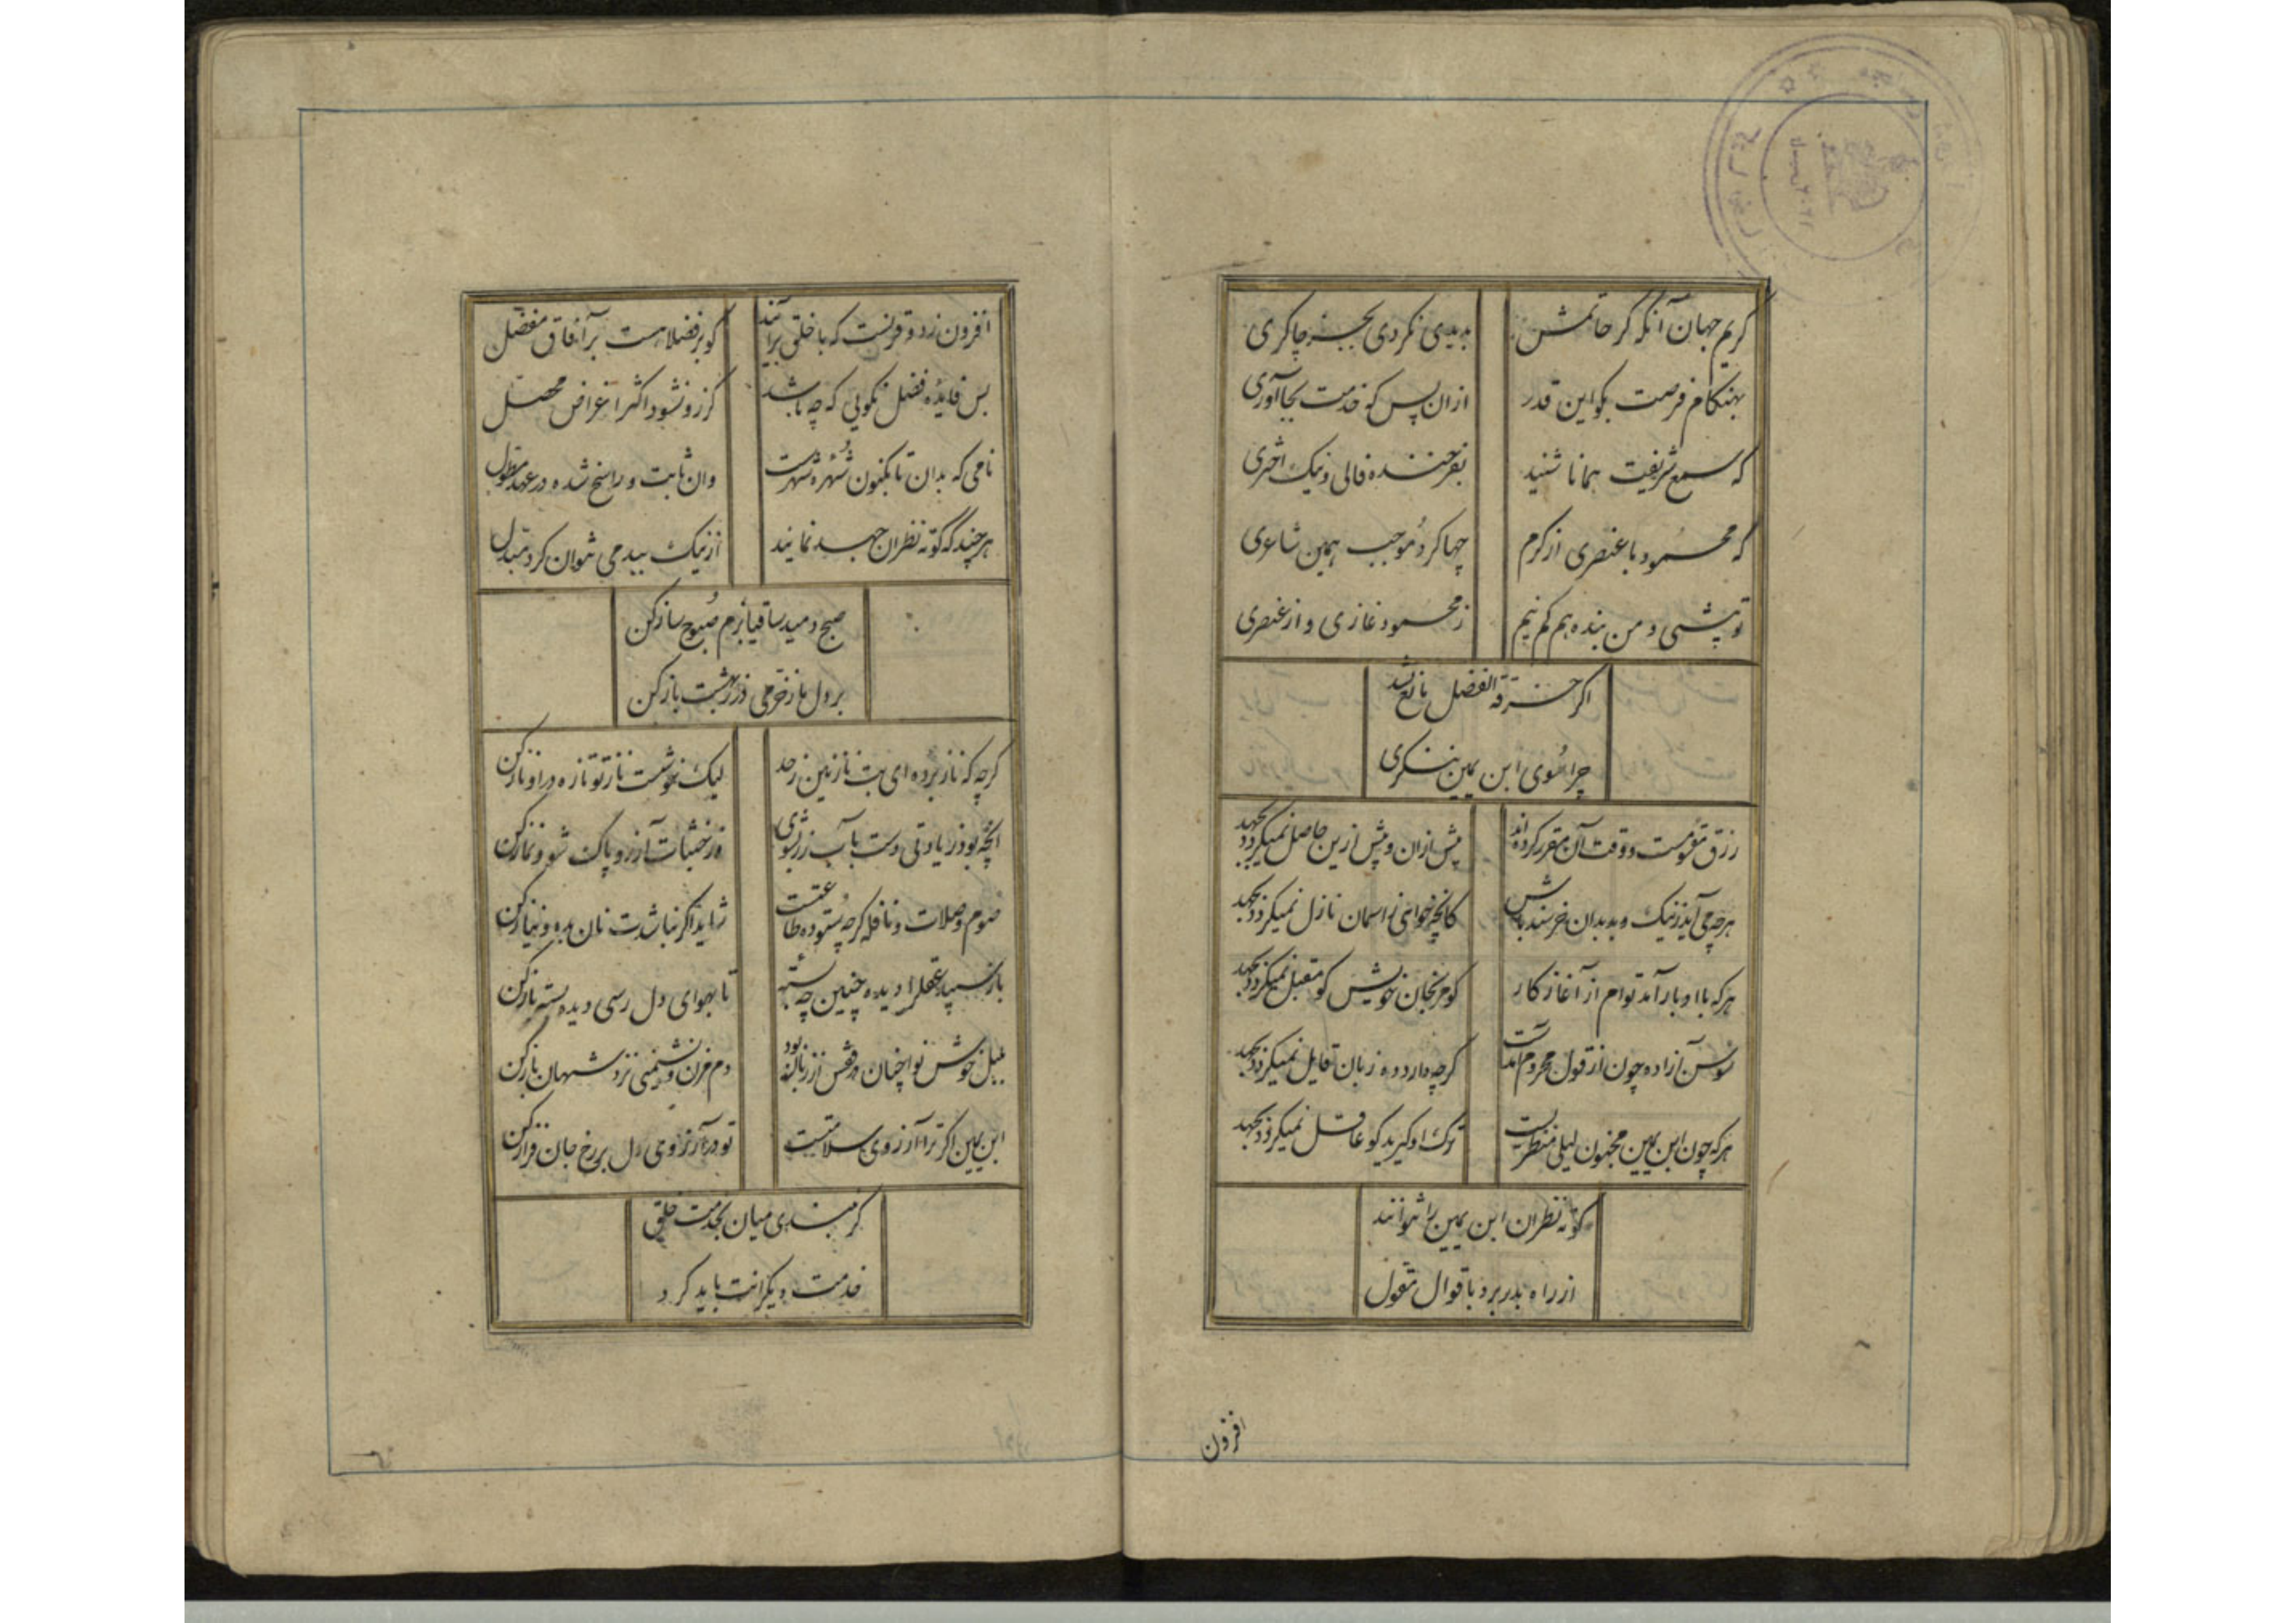 کریم جهان آنکه گر حاتمش
بدیدی نکردی بجز چاکری
بهنگام فرصت بگو این قدر
ازان پس که خدمت بجا آوری
که سمع شریفت همانا شنید
بفرخنده فالی و نیک اختری
که محمود با عنصری از کرم
چها کرد موجب همین شاعری
تو بیشی و من بنده هم کم نیم
ز محمود غازی و از عنصری
اگر خرقة الفضل مانع نشد
چرا سوی ابن یمین ننگری
رزق مقسومست و وقت آن مقرر کرده اند
بیش ازان و پیش ازین حاصل نمیگردد بجهد
هرچه می آید ز نیک و بد بدان خرسند باش
کانچه خواهی ز اسمان نازل نمیگردد بجهد
هرکه با ادبار آمد توام از آغاز کار
گو مرنجان خویش کو مقبل نمیگردد بجهد
سوسن آزاده چون از قول محروم آمدست
گرچه دارد ده زبان قایل نمیگردد بجهد
هرکه چون ابن یمین مجنون لیلی منظریست
ترک او گیرید کو عاقل نمیگردد بجهد
کوته نظران ابن یمین را نتوانند
از راه بدر برد باقوال مقول
افزون
افزون زد و قرنست که با خلق برآنند
کو بر فضلا هست برآفاق مفضل
بس فایده فضل نگویی که چه باشد
کز زو نشود اکثر اغراض محصل
نامی که بدان تا بکنون شهره شهرست
وان ثابت و راسخ شده در عهد مطول
هرچند که کوته نظران جهد نمایند
از نیک ببد می نتوان کرد مبدل
صبح دمید ساقیا بزم صبوح ساز کن
بر دل ما ز خرمی در ز بهشت باز کن
گرچه که ناز برده ای بت نازنین ز حد
لیک خوشست ناز تو تازه درا و ناز کن
انچه بود زیادتی دست بآب زر بشوی
وز خبثات آز رو پاک شو و نماز کن
صوم و صلات و نافله گرچه ستوده طاعتست
شاید اگر نباشدت نان بده و نیاز کن
باز سپید عقل را دیده چنین چه بسته
تا بهوای دل رسی دیده بسته باز کن
بلبل خوش نوا چنان در قفس از زبان بود
دم مزن و نشیمنی نزد شهان باز کن
ابن یمین اگر ترا آرزوی سلامتیست
تو در آرزوی دل بر رخ جان فراز کن
گر ببندی میان بخدمت خلق
خدمت دیگرانت باید کرد